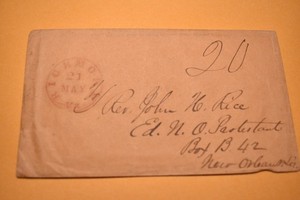 RICHMOND
21
MAY
Va.
20
Rev. John H. Rice
Ed. N. O. Protestant
Box B 42
New Orleans